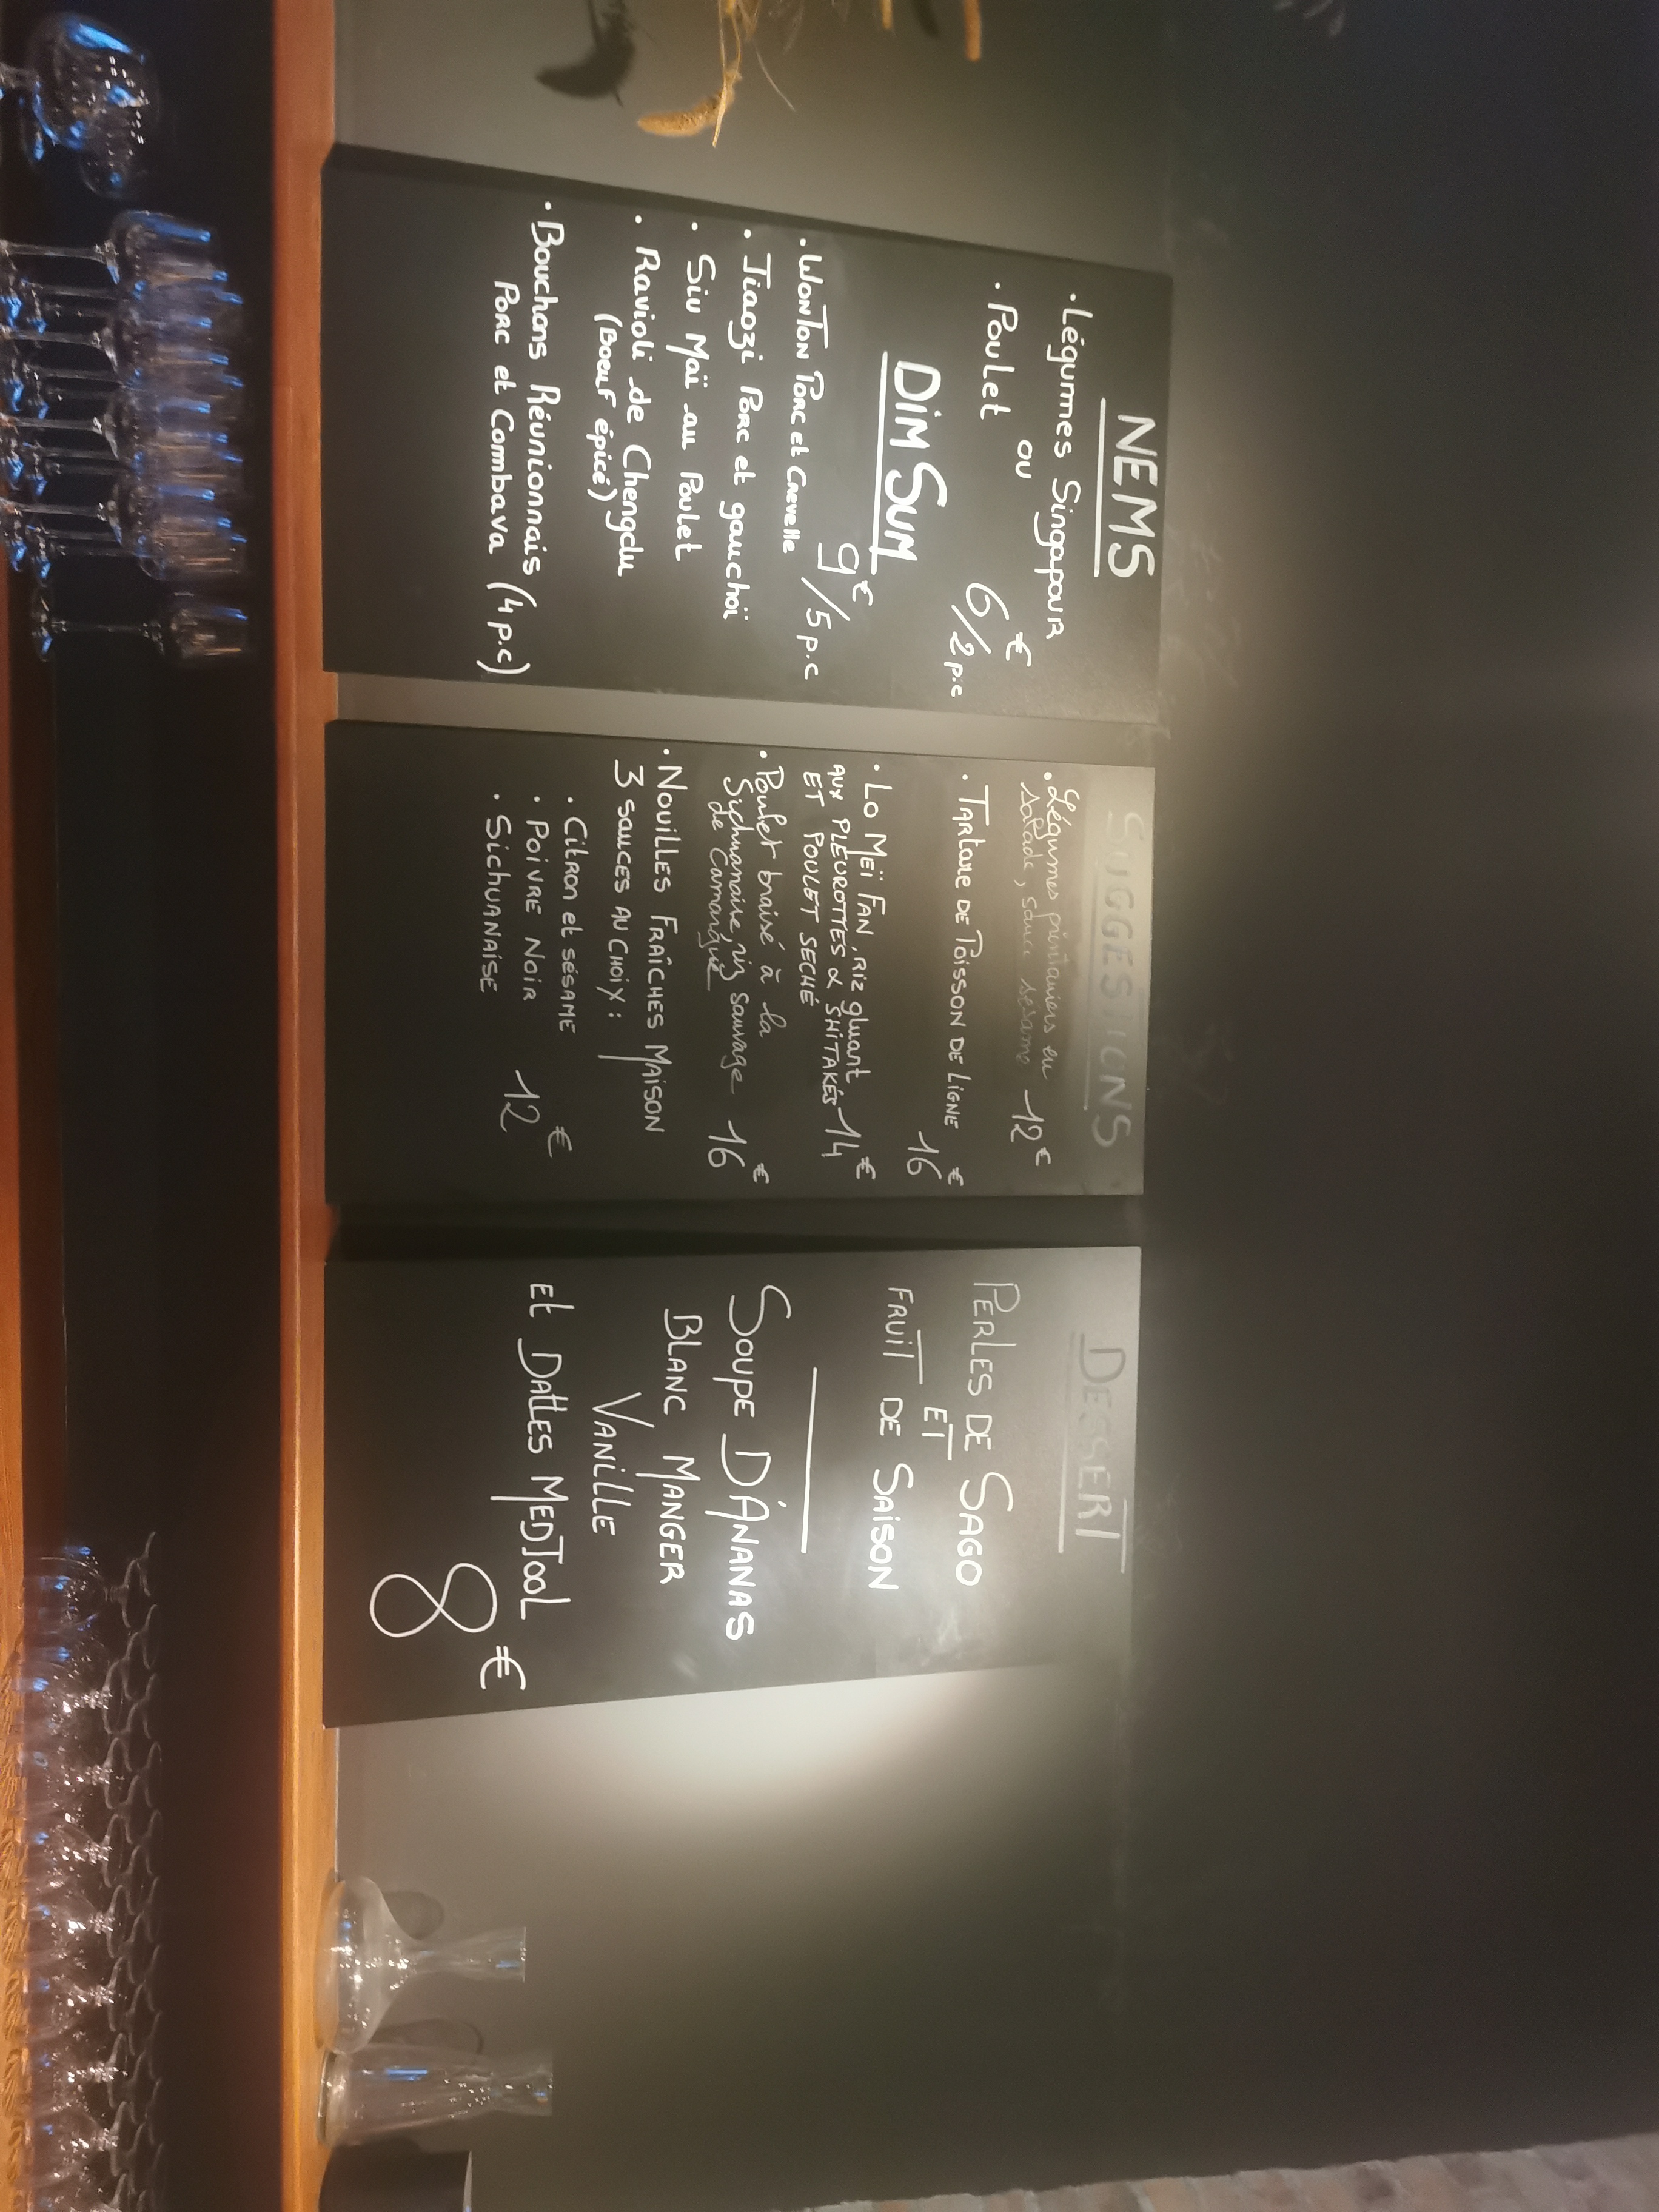 NEMS
. Légumes Singapour
ou
. Poulet 6€/2 p.c
DIM SUM
9€/5 p.c
. Wonton Porc et Crevette
. Jiaozi Porc et gauchoï
. Siu Maï au Poulet
. Ravioli de Chengdu
(Bœuf épicé)
. Bouchons Réunionnais
Porc et Combava (4 p.c)
SUGGESTIONS
. Légumes printaniers en
salade, sauce sésame 12€
. TARTARE DE POISSON DE LIGNE
16€
. LO MEÏ FAN, RIZ gluant
AUX PLEUROTTES & SHITAKÉS 14€
ET POULET SECHÉ
. Poulet braisé à la
Sichuanaise, riz sauvage 16€
de Camargue
. NOUILLES FRAÎCHES MAISON
3 SAUCES AU CHOIX :
. Citron et SÉSAME
. POIVRE NOIR 12€
. SICHUANAISE
DESSERT
PERLES DE SAGO
ET
FRUIT DE SAISON
SOUPE D'ANANAS
BLANC MANGER
VANILLE
Et DATTES MEDJOOL
8€